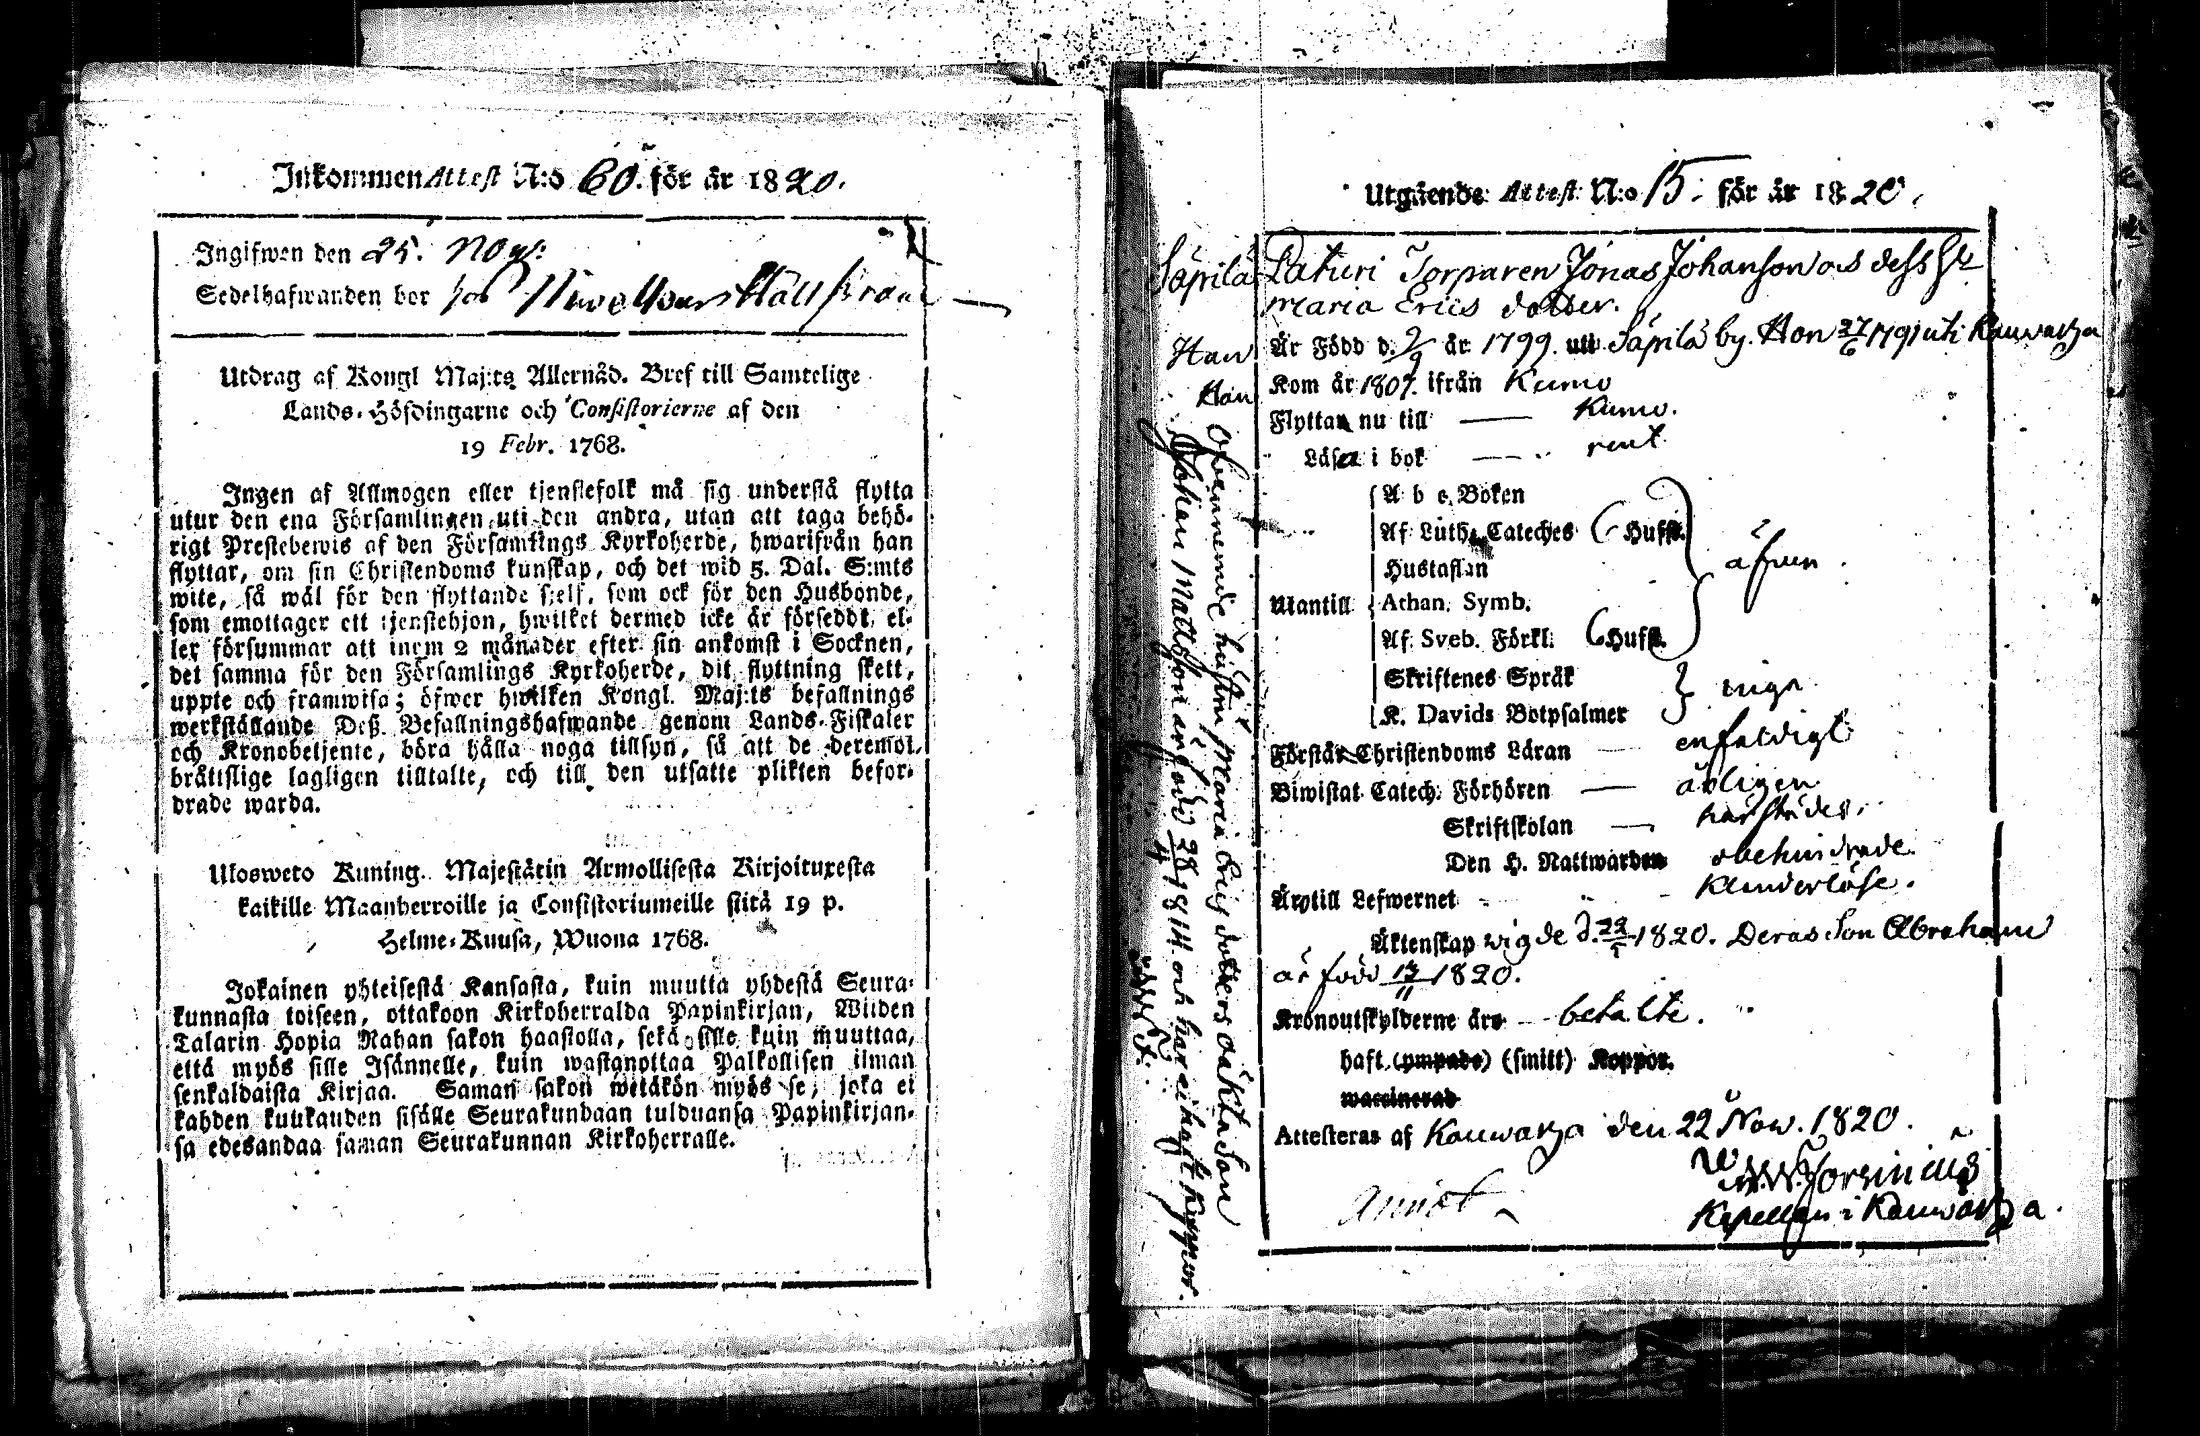 Inkommen Attest N:o 60. för år 1820.
Ingifwen den 25. Nov:
Sedelhafwanden bor hos
Utdrag af Kongl Maj:ts Allernåd. Bref till Samtelige
Lands-Höfdingarne och Consistorierne af den
19 Febr. 1768.
Ingen af Allmogen eller tjenstefolk må sig understå flytta
utur den ena Församlingen uti den andra, utan att taga behö-
rigt Prestebewis af den Församlings Kyrkoherde, hwarifrån han
flyttar, om sin Christendoms kunskap, och det wid 5. Dal. S:mts
wite, så wäl för den flyttande sjelf, som ock för den Husbonde,
som emottager ett tjenstehjon, hwilket dermed icke är försedt, el-
ler försummar att inom 2 månader efter sin ankomst i Socknen,
det samma för den Församlings Kyrkoherde, dit flyttning skett,
uppte och framwisa; öfwer hwilken Kongl. Maj:ts befallnings
werkställande Deß Befallningshafwande genom Lands-Fiskaler
och Kronobetjente, böra hålla noga tillsyn, så att de deremot
bråttslige lagligen tilltalte, och till den utsatte plikten befor-
drade warda.
Ulosweto Kuning. Majestätin Armollisesta Kirjoituxesta
kaikille Maanherroille ja Consistoriumeille siitä 19 p.
Helme-Kuusa, Wuona 1768.
Jokainen yhteisestä Kansasta, kuin muutta yhdestä Seura-
kunnasta toiseen, ottakoon Kirkoherralda Papinkirjan, Wiiden
Talarin Hopia Rahan sakon haastolla, sekä sille kuin muuttaa,
että myös sille Isännelle, kuin wastanottaa Palkollisen ilman
senkaldaista Kirjaa. Saman sakon wetäkön myös se, joka ei
kahden kuukauden sisälle Seurakundaan tulduansa Papinkirjan-
sa edesandaa saman Seurakunnan Kirkoherralle.
Utgående Attest N:o 15. för år 1820.
Säpilä Laturi Torparen Jonas Johanson och dess Hu
Maria Erics dotter.
Han Är Född d. 2/9 år 1799. uti Säpilä by. Hon 27/6 1791 uti Kauwatza
Han Kom år 1807. ifrån Kumo
Flyttar nu till Kumo.
Läser i bok rent
A b c. Boken
Af Luth. Cateches Hufst.
Hustaflan äfwen
Utantill Athan. Symb.
Af Sveb. Förkl. Hufst.
Skriftenes Språk
K. Davids Botpsalmer inga
Förstår Christendoms Läran enfaldigt
Biwistat Catech. Förhören årligen
Skriftskolan härstädes.
Den H. Nattwarden obehindrade
Är till Lefwernet klanderlöse.
Äktenskap wigde d. 1820. Deras Son Abraham
är född 13/11 1820.
Kronoutskylderne äro betalte.
haft (ympade) (smitt) Koppor.
waccinerad
Attesteras af Kauwatza den 22 Now. 1820.
Kapellan i Kauwatza.
Ofwannemde hustru Maria Erics dotters oäkta Son
Johan Mattsson är född 28/4 1814 och har ej haft Koppor.